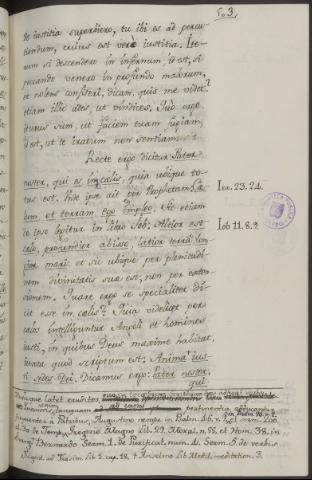 503.
de iustitia superbiero, tu ibi es ad percu-
tiendum, cuius est vere iustitia. Ite-
rum si descendero in infernum, id est, si
peccando venero in profundo malorum,
et nolens confiteri, dicam, quis me videt?
etiam illic ades, ut vindices. Quo ergo
iturus sum, ut faciem tuam fugiam,
id est, ut te iratum non sentiam?
Recte ergo dicitur Pater
noster, qui es in caelis, quia ubique to-
tus est. Hinc ipse ait per Prophetam: Cae-
lum, et terram ego impleo. Sic etiam
de ipso legitur in libro Iob: Altior est
caelo, profundior abisso, latior terra, lon-
gior mari: et sic ubique per plenitudi-
nem divinitatis suae est, non per exten-
sionem. Quare ergo se specialiter di-
cit esse in caelis? Quia videlicet per
caelos intelliguntur Angeli et homines
iusti, in quibus Deus maxime habitat,
iuxta quod scriptum est: Anima ius-
ti sedes Dei. Dicamus ergo: Pater noster,
qui
Ier. 23. 24.
Iob 11. 8. 9.
latet eruditos
pertinentia
Patribus, Augustino in Psalm. 46.
Gregorio Magno Lib. 29. Moral. et Hom. 38. in
Bernardo Serm. 1. de Purificat. num. 4. Serm. 5. de verbis
cap. 12. Anselmo meditation. 3.